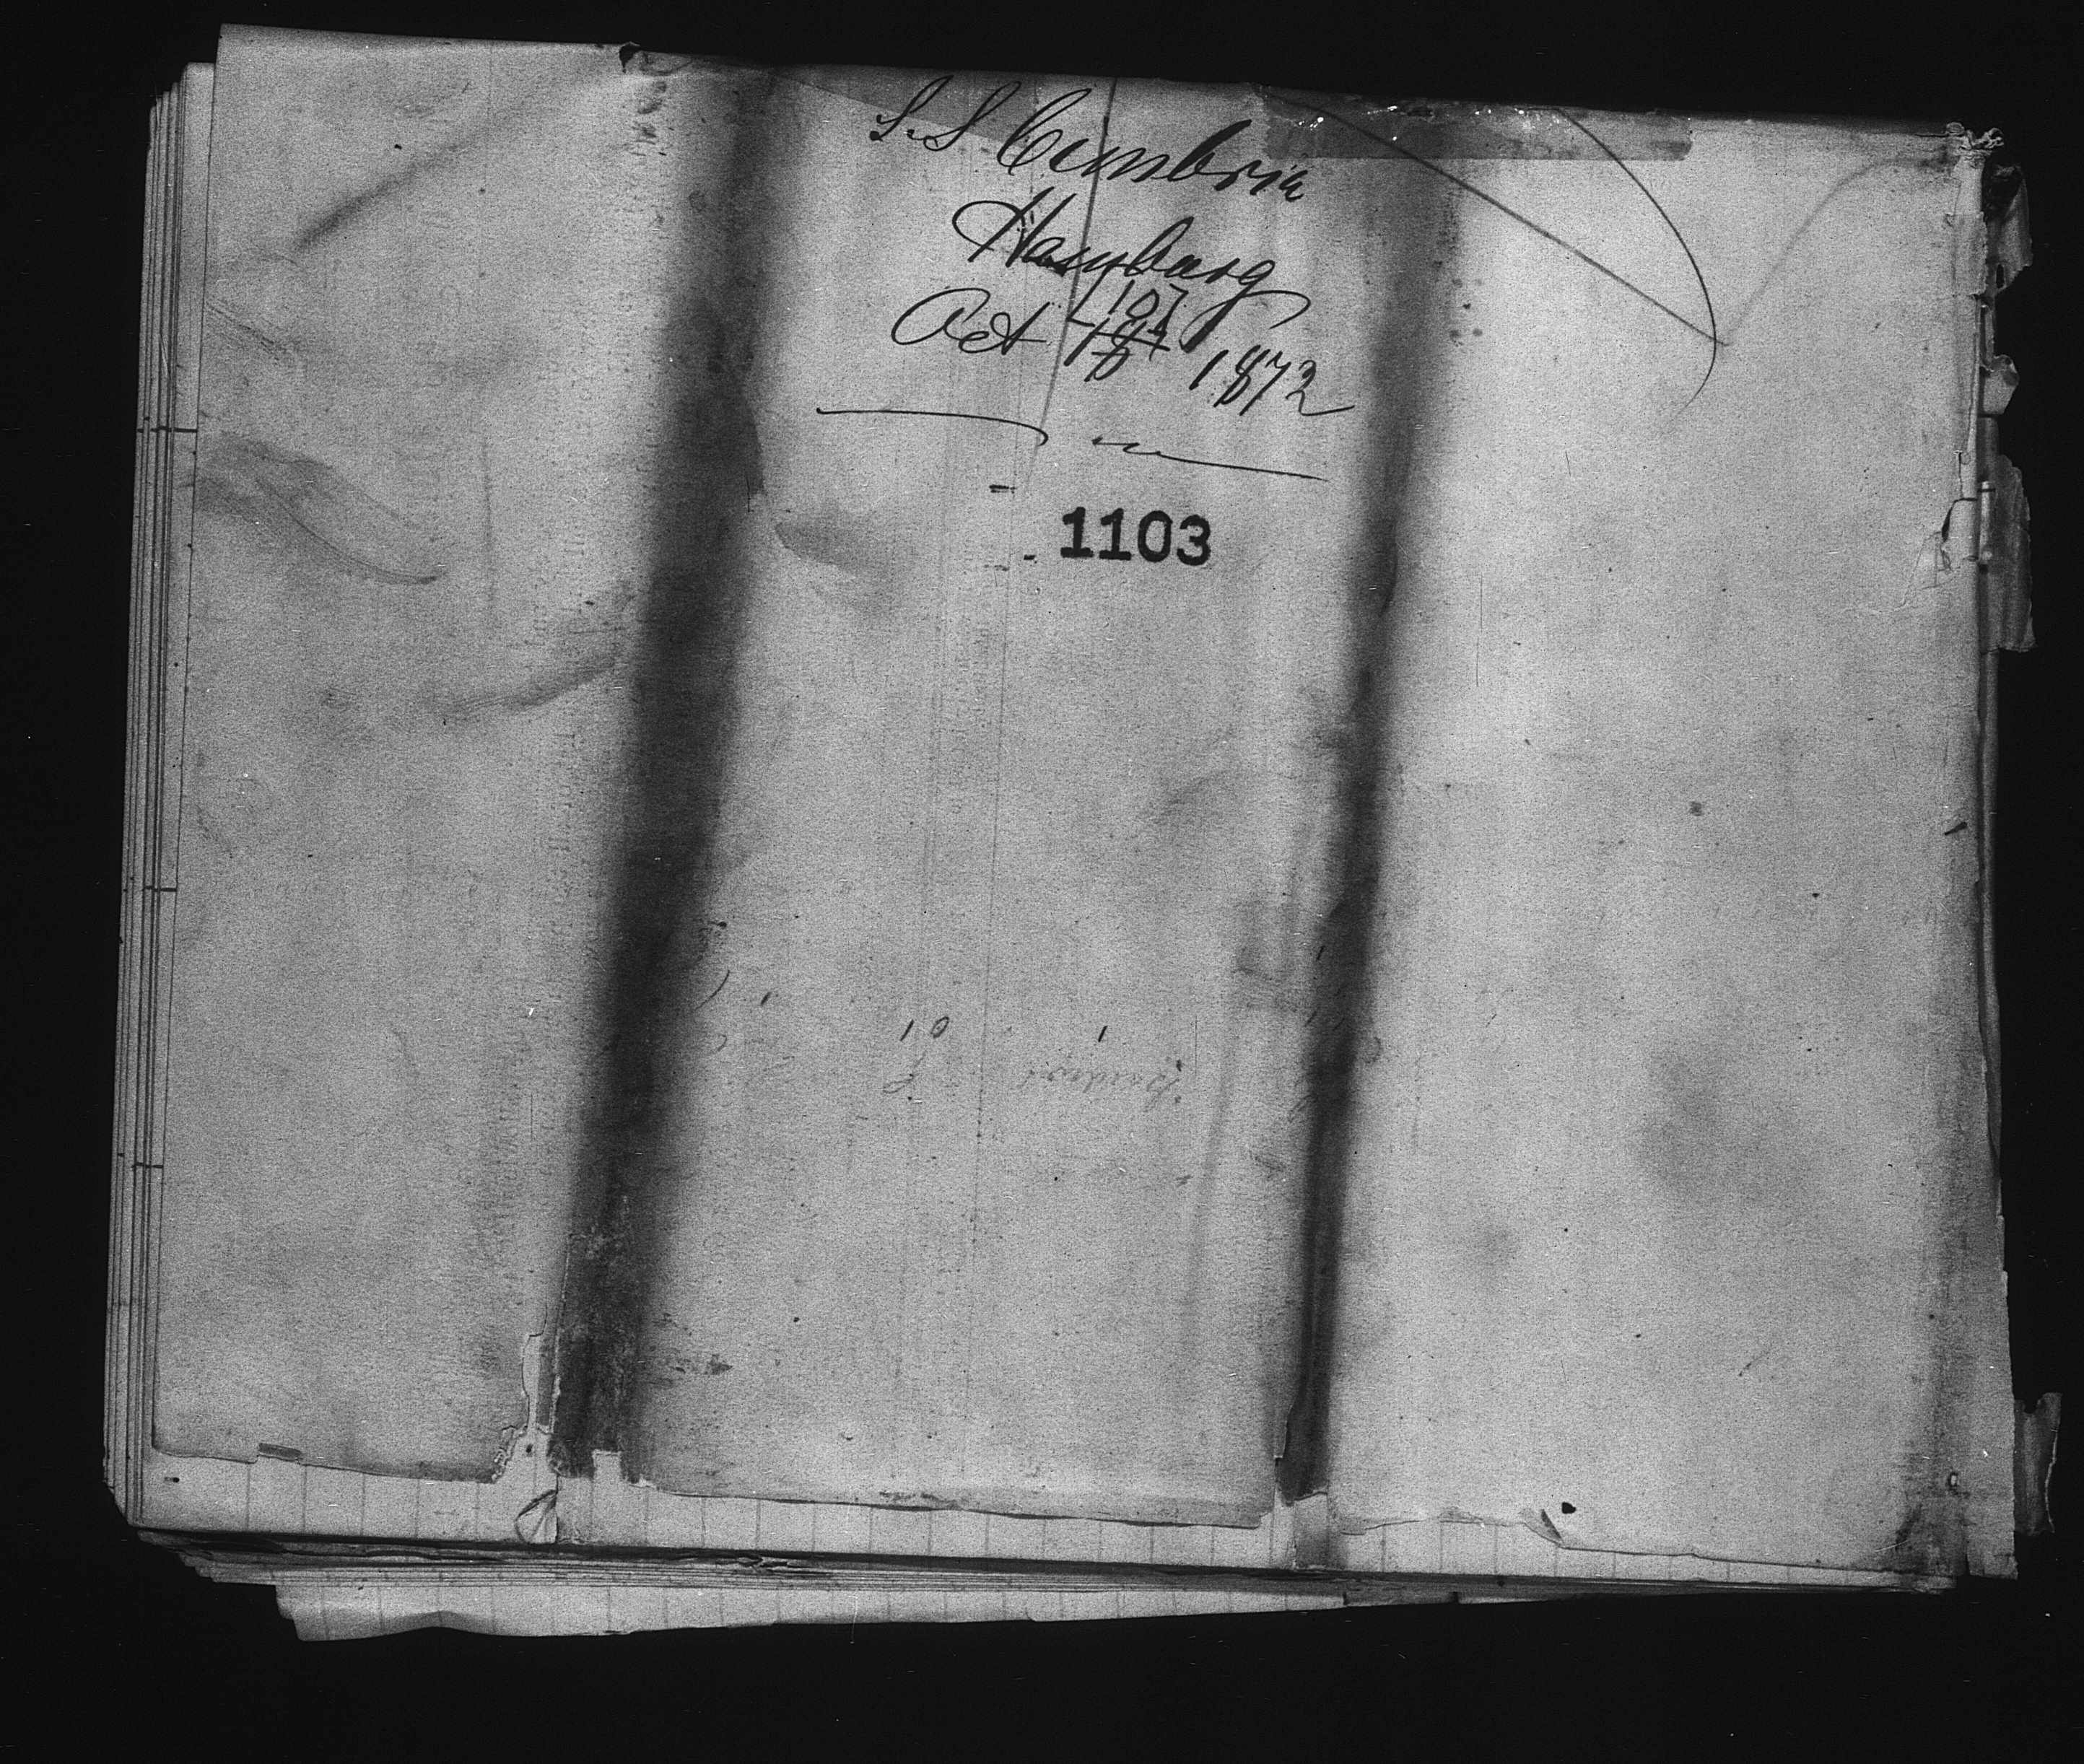 S.S Cimbria
Hamburg
107
Oct 18 1872
1103
10 1